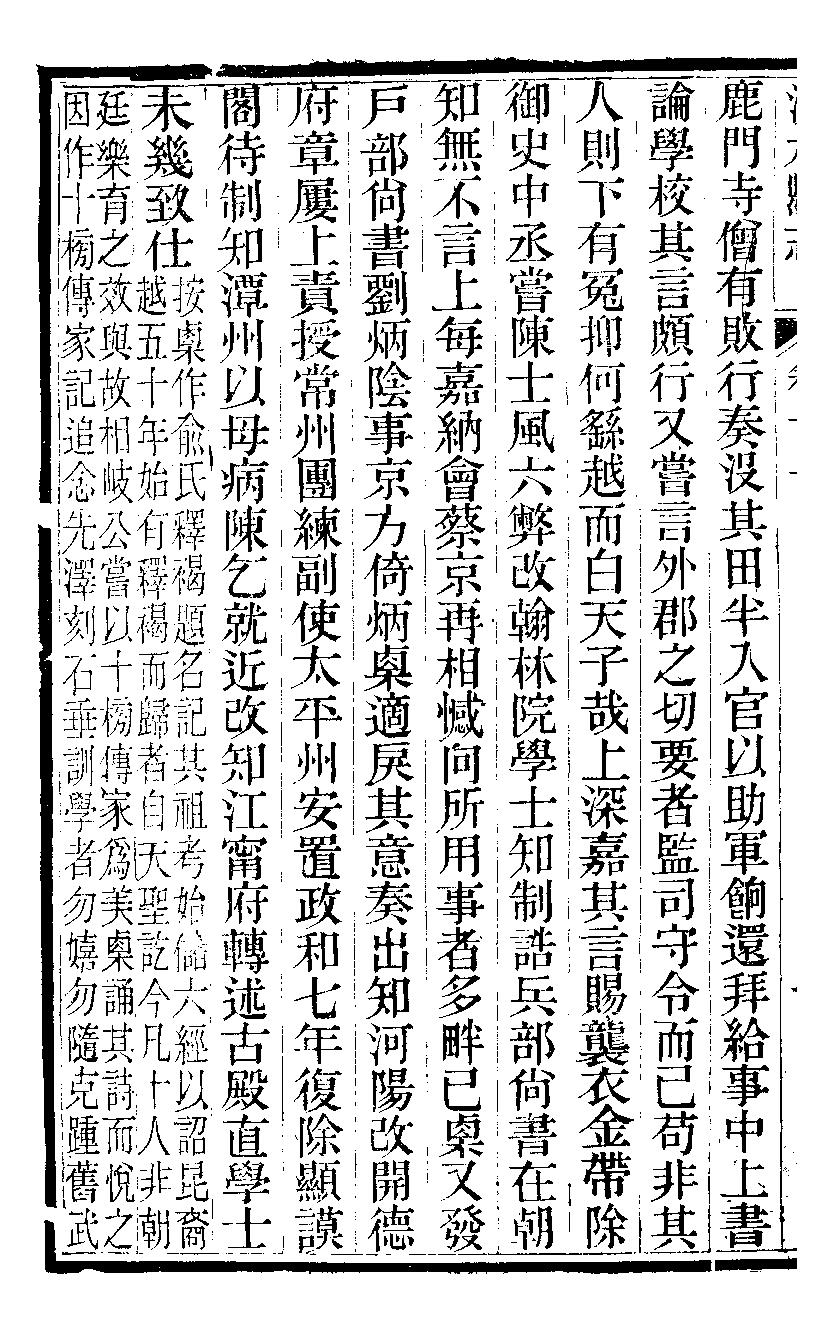 鹿門寺僧有敗行奏没其田半入官以助軍餉還拜給事中上書
論學校其言頗行又嘗言外郡之切要者監司守令而已苟非其
人則下有冤抑何繇越而白天子哉上深嘉其言賜襲衣金帶除
御史中丞嘗陳士風六弊改翰林院學士知制誥兵部尙書在朝
知無不言上每嘉納會蔡京再相憾向所用事者多畔已㮚又發
戸部尙書劉炳陰事京方倚炳㮚適戾其意奏出知河陽改開德
府章屢上責授常州團練副使太平州安置政和七年復除顯謨
閣待制知潭州以母病陳乞就近改知江甯府轉述古殿直學士
未幾致仕
按㮚作俞氏釋褐題名記其祖考始儲六經以詔昆裔
越五十年始有釋褐而歸者自天聖訖今凡十人非朝
廷樂育之效與故相岐公嘗以十榜傳家爲美㮚誦其詩而悅之
因作十榜傳家記追念先澤刻石垂訓學者勿嬉勿隨克踵舊武